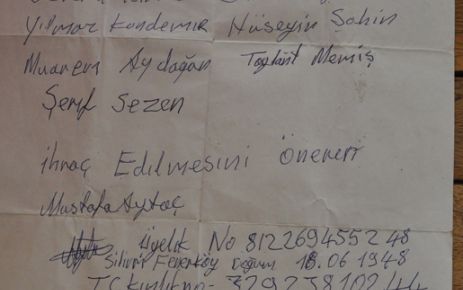 Yılmaz Kandemir Hüseyin Şahin
Muarem Aydoğan Memiş
Şerif Sezen
ihraç Edilmesini Öneren
Mustafa Aytaç
Üyelik No 8122694555248
Silivri Fenerköy Doğum 18.06.1948
TC kimlik no-